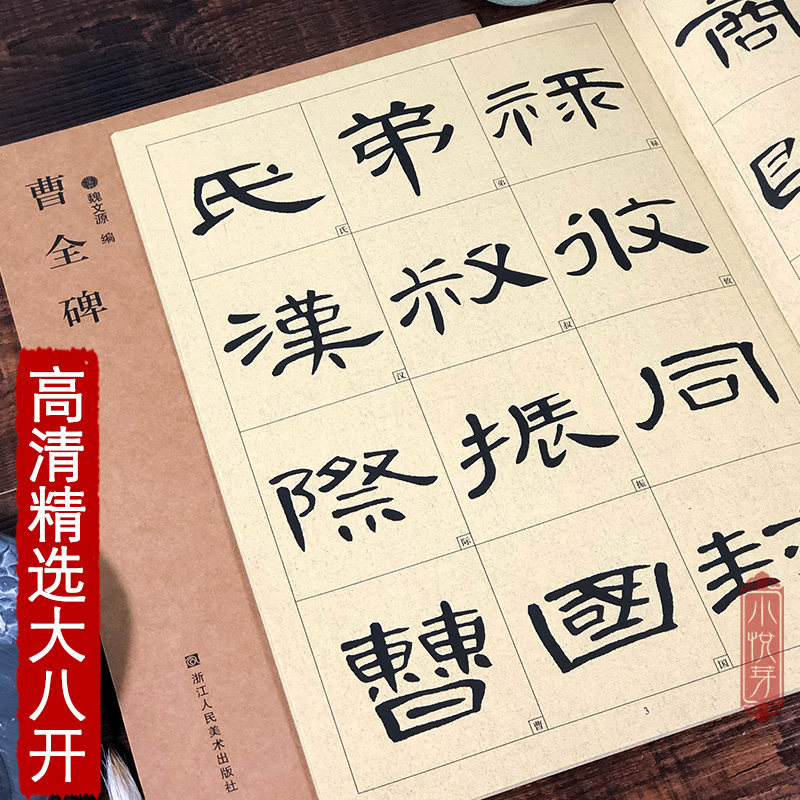 曹全碑
魏文源 编
浙江人民美术出版社
高清精选大八开
商
祿攸同封
弟叔振國
氏漢際曹
禄
攸
弟
叔
振
国
氏
汉
际
曹
3
小悦芽